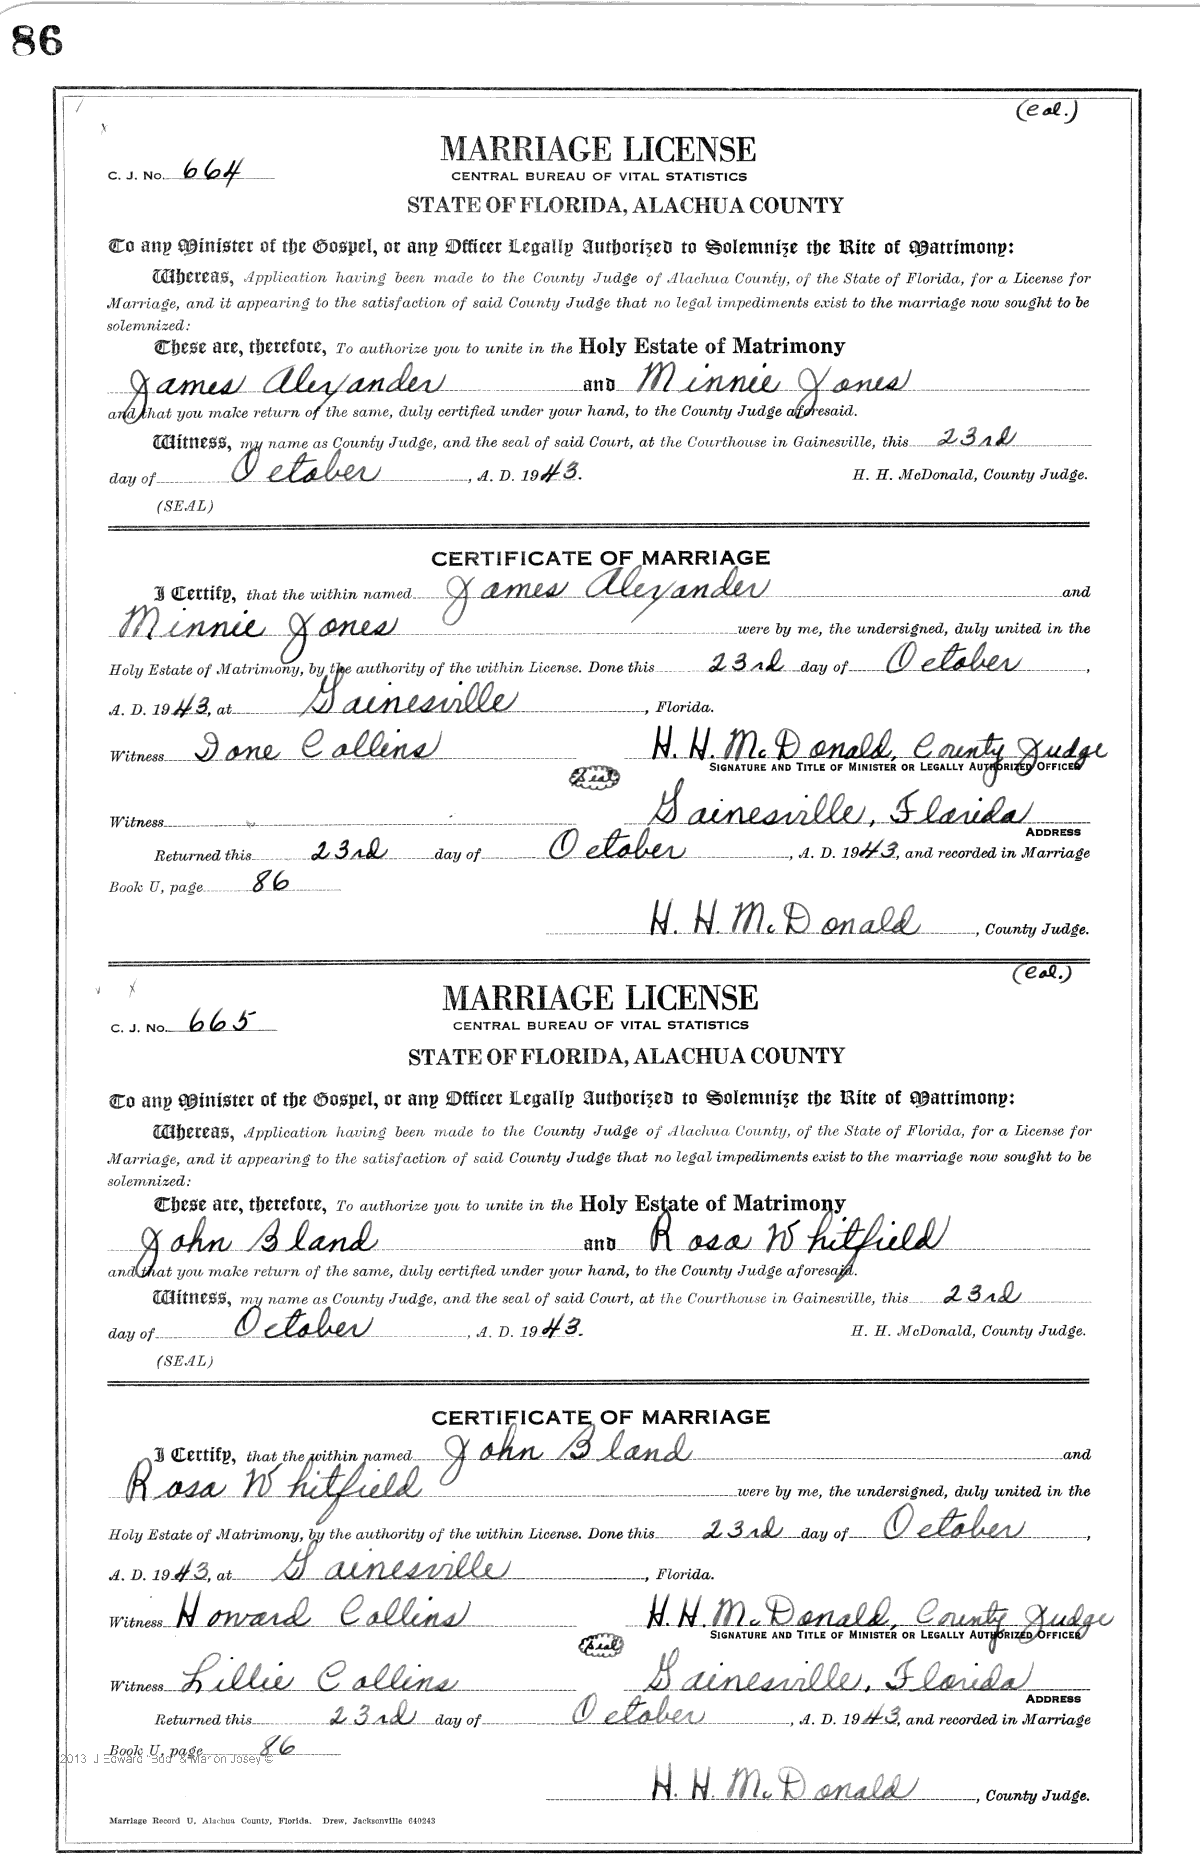 86
(Col.)
MARRIAGE LICENSE
C. J. No. 664
CENTRAL BUREAU OF VITAL STATISTICS
STATE OF FLORIDA, ALACHUA COUNTY
To any Minister of the Gospel, or any Officer Legally Authorized to Solemnize the Rite of Matrimony:
Whereas, Application having been made to the County Judge of Alachua County, of the State of Florida, for a License for
Marriage, and it appearing to the satisfaction of said County Judge that no legal impediments exist to the marriage now sought to be
solemnized:
These are, therefore, To authorize you to unite in the Holy Estate of Matrimony
James Alexander and Minnie Jones
and that you make return of the same, duly certified under your hand, to the County Judge aforesaid.
Witness, my name as County Judge, and the seal of said Court, at the Courthouse in Gainesville, this 23rd
day of October, A. D. 1943. H. H. McDonald, County Judge.
(SEAL)
CERTIFICATE OF MARRIAGE
I Certify, that the within named James Alexander and
Minnie Jones were by me, the undersigned, duly united in the
Holy Estate of Matrimony, by the authority of the within License. Done this 23rd day of October,
A. D. 1943, at Gainesville, Florida.
Witness Done Collins H. H. McDonald, County Judge
SIGNATURE AND TITLE OF MINISTER OR LEGALLY AUTHORIZED OFFICER
Seal
Witness Gainesville, Florida
ADDRESS
Returned this 23rd day of October, A. D. 1943, and recorded in Marriage
Book U, page 86
H. H. McDonald, County Judge.
(Col.)
MARRIAGE LICENSE
C. J. No. 665
CENTRAL BUREAU OF VITAL STATISTICS
STATE OF FLORIDA, ALACHUA COUNTY
To any Minister of the Gospel, or any Officer Legally Authorized to Solemnize the Rite of Matrimony:
Whereas, Application having been made to the County Judge of Alachua County, of the State of Florida, for a License for
Marriage, and it appearing to the satisfaction of said County Judge that no legal impediments exist to the marriage now sought to be
solemnized:
These are, therefore, To authorize you to unite in the Holy Estate of Matrimony
John Bland and Rosa Whitfield
and that you make return of the same, duly certified under your hand, to the County Judge aforesaid.
Witness, my name as County Judge, and the seal of said Court, at the Courthouse in Gainesville, this 23rd
day of October, A. D. 1943. H. H. McDonald, County Judge.
(SEAL)
CERTIFICATE OF MARRIAGE
I Certify, that the within named John Bland and
Rosa Whitfield were by me, the undersigned, duly united in the
Holy Estate of Matrimony, by the authority of the within License. Done this 23rd day of October,
A. D. 1943, at Gainesville, Florida.
Witness Howard Collins H. H. McDonald, County Judge
SIGNATURE AND TITLE OF MINISTER OR LEGALLY AUTHORIZED OFFICER
Seal
Witness Lillie Collins Gainesville, Florida
ADDRESS
Returned this 23rd day of October, A. D. 1943, and recorded in Marriage
Book U, page 86
2013 J Edward "Bud" & Marion Josey ©
H. H. McDonald, County Judge.
Marriage Record U, Alachua County, Florida. Drew, Jacksonville 640243